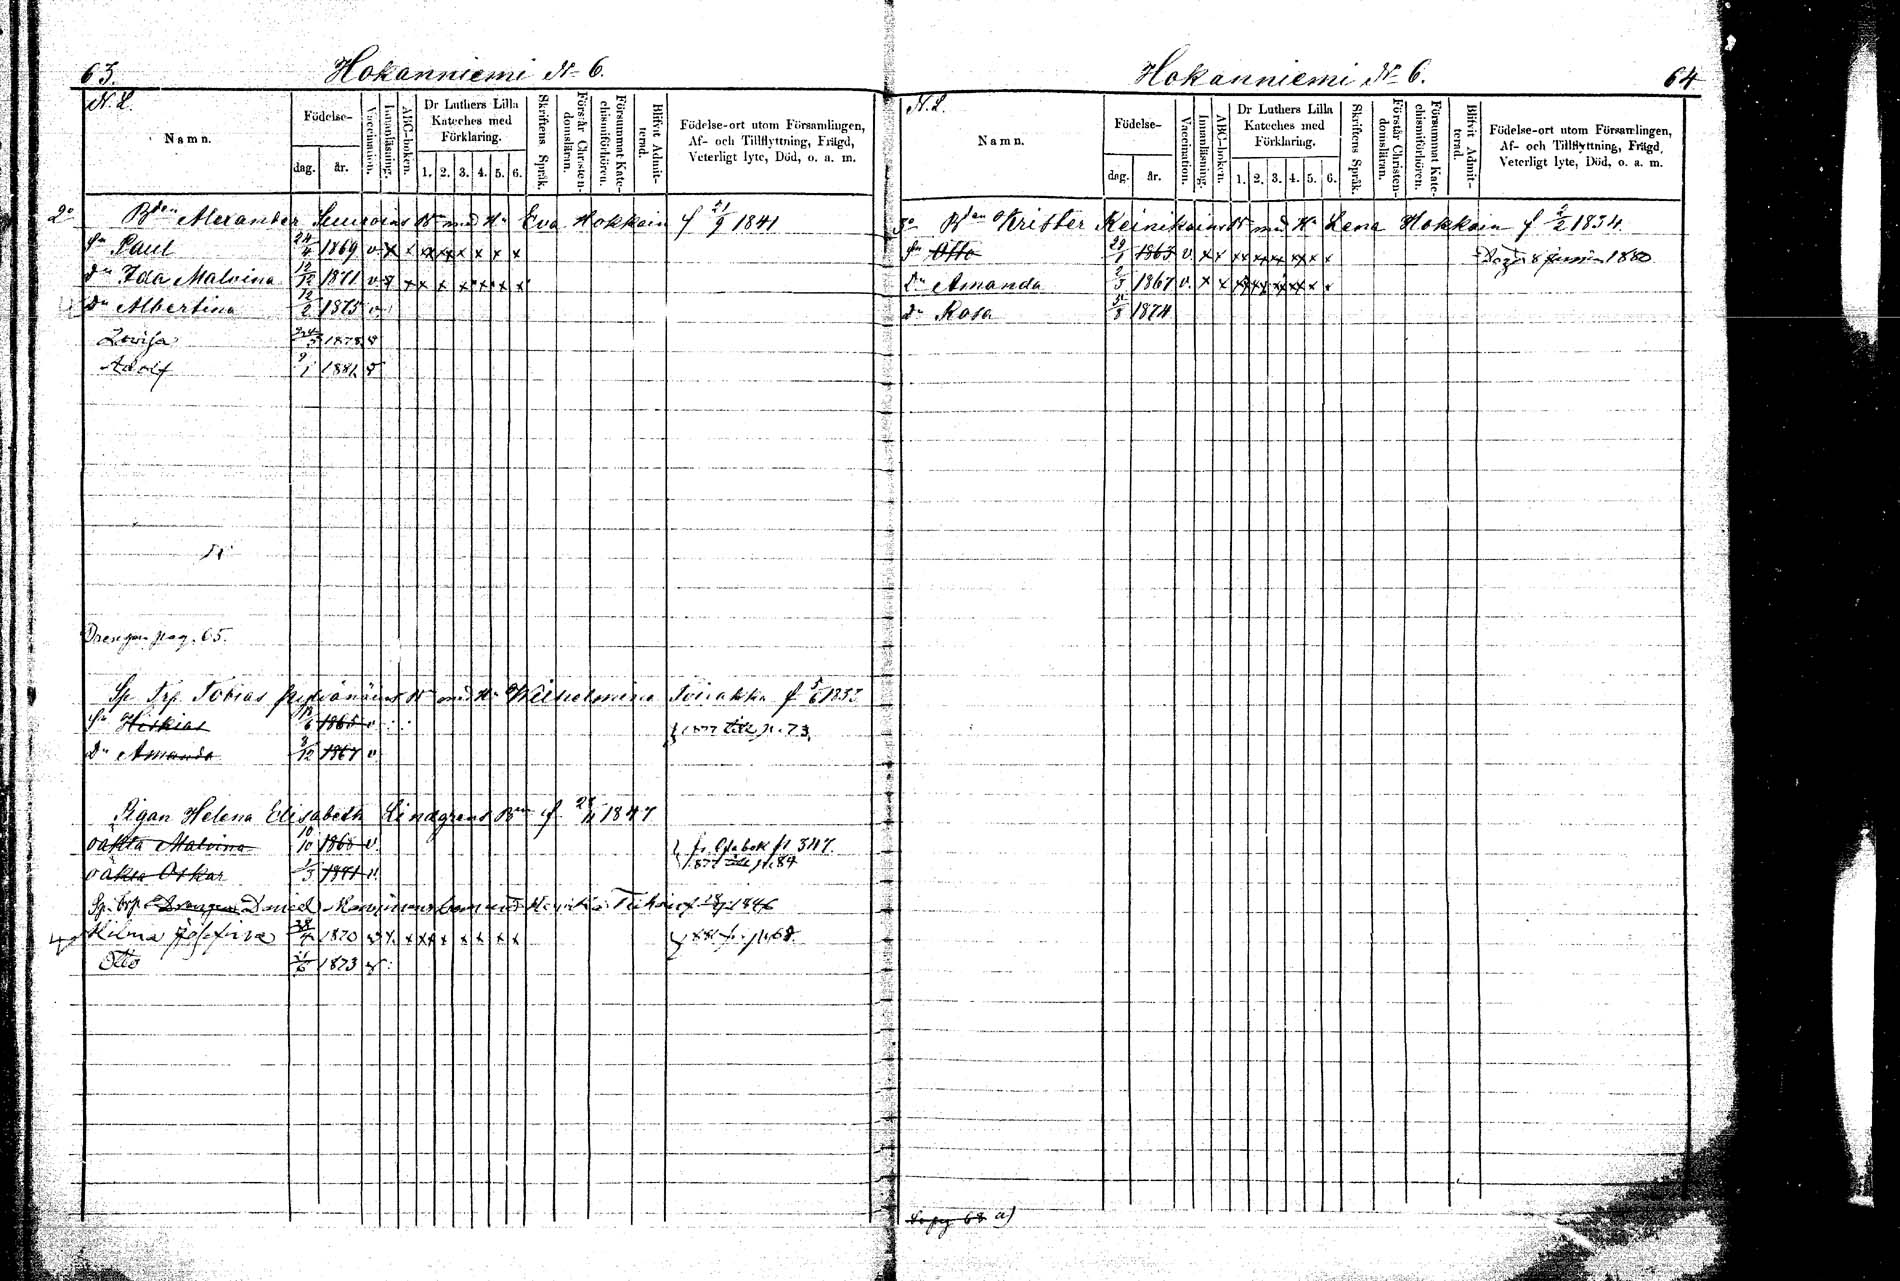 63.
Hokanniemi No 6.
N. L.
Namn.
Födelse-
dag.
år.
Vaccination.
Innanläsning.
ABC-boken.
Dr Luthers Lilla
Kateches med
Förklaring.
1. 2. 3. 4. 5. 6.
Skriftens Språk.
Förstår Christen-
domsläran.
Försummat Kate-
chismiförhören.
Blifvit Admit-
terad.
Födelse-ort utom Församlingen,
Af- och Tillflyttning, Frägd,
Veterligt lyte, Död, o. a. m.
2o Bden Alexander med Hu Eva Hokkain f 21/9 1841
Sn Paul 24/4 1869 v x x xx xx x x x x
Dn Ida Malvina 12/12 1871 v
Dn Albertina 12/2 1875 v
Lovisa 1878 v
Adolf 9/1 1881 v
Drengen pag. 65.
Sp. Trp. Tobias med Hu Wilhelmina f 5/6 1833
Sn Hiskias 1865 v
p. 73.
Dn Amanda 3/12 1867 v
Pigan Helena Elisabeth Lindgrens Bn f. 1847
oäkta Malvina 10/10 1868 v.
bok p. 347.
oäkta Oskar 1/3 1871 v.
1877 till p. 84
Sp. trp. Drengen Daniel 1846
Hilma Josefina 1870 v x. x xxx x x x x
p. 68.
Otto 21/6 1873 v
Hokanniemi No 6.
64.
N. L.
Namn.
Födelse-
dag.
år.
Vaccination.
Innanläsning.
ABC-boken.
Dr Luthers Lilla
Kateches med
Förklaring.
1. 2. 3. 4. 5. 6.
Skriftens Språk.
Förstår Christen-
domsläran.
Försummat Kate-
chismiförhören.
Blifvit Admit-
terad.
Födelse-ort utom Församlingen,
Af- och Tillflyttning, Frägd,
Veterligt lyte, Död, o. a. m.
3o Bden Krister Reinikains Bn med Hu Lena Hokkain f 2/2 1834.
Sn Otto 29/1 1863 v. x x
1880
Dn Amanda 2/3 1867 v. x x
Dn Rosa 1874
68 a)